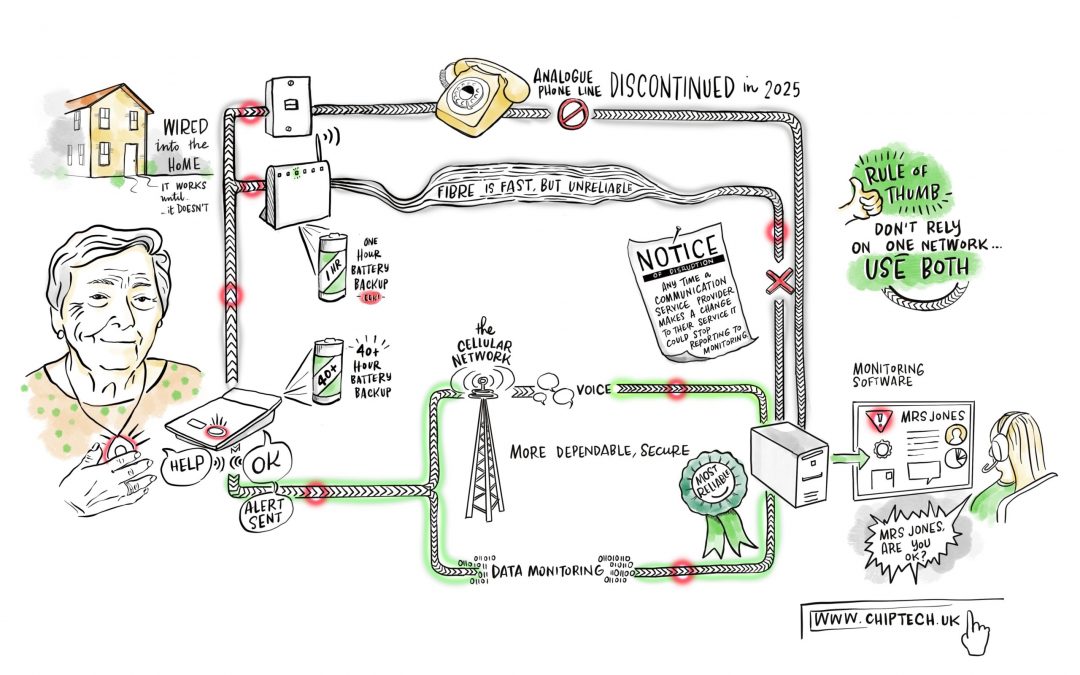 WIRED
into the
HOME
IT WORKS
until..
..it DOESN'T
ANALOGUE
PHONE LINE
DISCONTINUED in 2025
FIBRE IS FAST, BUT UNRELIABLE
1 HR
ONE
HOUR
BATTERY
BACKUP
NOTICE
OF DISRUPTION
ANY TIME A
COMMUNICATION
SERVICE PROVIDER
MAKES A CHANGE
TO THEIR SERVICE IT
COULD STOP
REPORTING TO
MONITORING.
RULE OF
THUMB
DON'T RELY
ON ONE NETWORK...
USE BOTH
40+
40+
HOUR
BATTERY
BACKUP
the
CELLULAR
NETWORK
VOICE
MORE DEPENDABLE, SECURE
MOST
RELIABLE
HELP
OK
ALERT
SENT
011010
0110
011
01101
DATA MONITORING
01101011
0110110
011010
MONITORING
SOFTWARE
!
MRS JONES
MRS JONES,
ARE YOU
OK?
WWW.CHIPTECH.UK